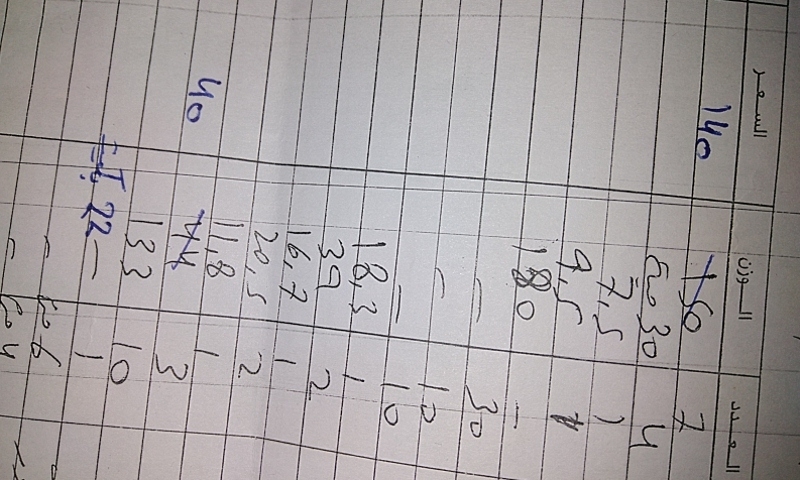 السعر الوزن العدد
140 150 7
30 4
7,5 1
9,5 1
180 –
– 30
– 10
– 10
18,3 1
39 2
16,7 1
20,5 2
11,8 1
40 44 3
133 10
22 – 1
6
4